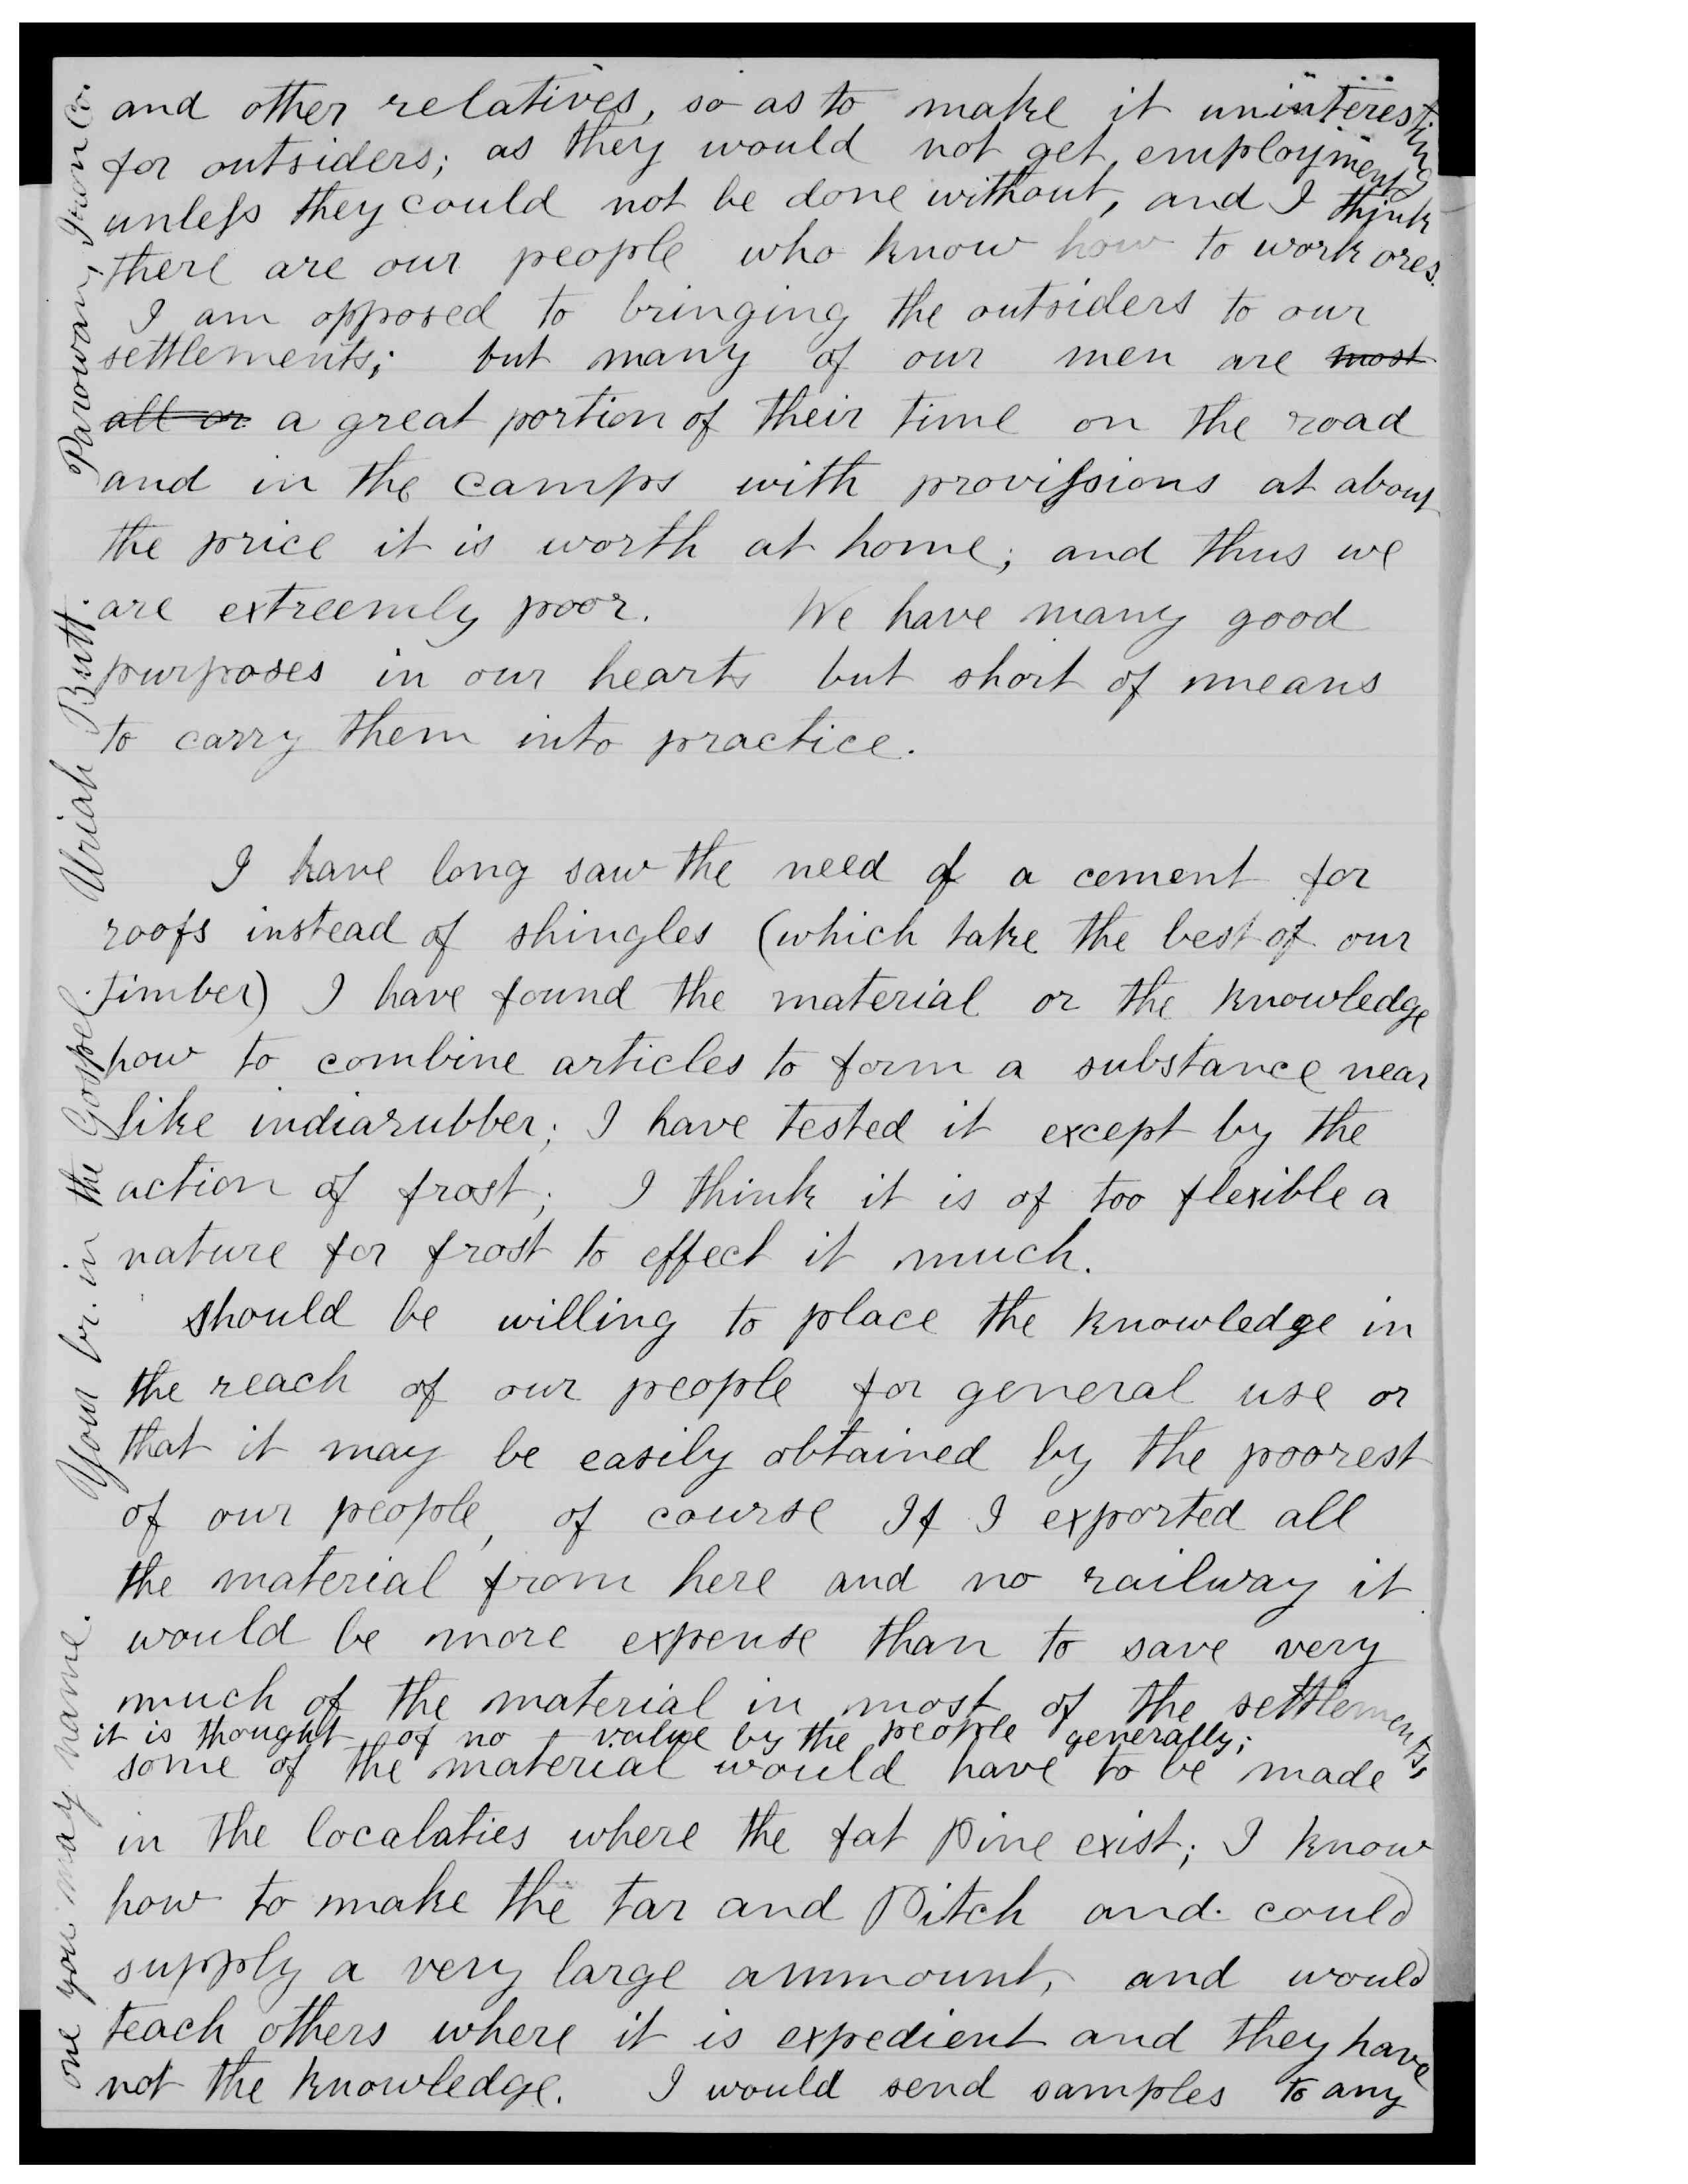 and other relatives, so as to make it uninteresting
for outsiders; as they would not get employment
unless they could not be done without, and I think
there are our people who know how to work ores.
I am opposed to bringing the outsiders to our
settlements; but many of our men are most
all or a great portion of their time on the road
and in the camps with provissions at about
the price it is worth at home; and thus we
are extreemly poor. We have many good
purposes in our hearts but short of means
to carry them into practice.
I have long saw the need of a cement for
roofs instead of shingles (which take the best of our
timber) I have found the material or the knowledge
how to combine articles to form a substance near
like indiarubber; I have tested it except by the
action of frost; I think it is of too flexible a
nature for frost to effect it much.
should be willing to place the knowledge in
the reach of our people for general use or
that it may be easily obtained by the poorest
of our people, of course If I exported all
the material from here and no railway it
would be more expense than to save very
much of the material in most of the settlements,
it is thought of no value by the people generally;
some of the material would have to be made
in the localaties where the fat Pine exist; I know
how to make the tar and Pitch and could
supply a very large ammount, and would
teach others where it is expedient and they have
not the knowledge. I would send samples to any
one you may name.
Your br. in the Gospel.
Uriah Butt.
Parowan, Iron Co.